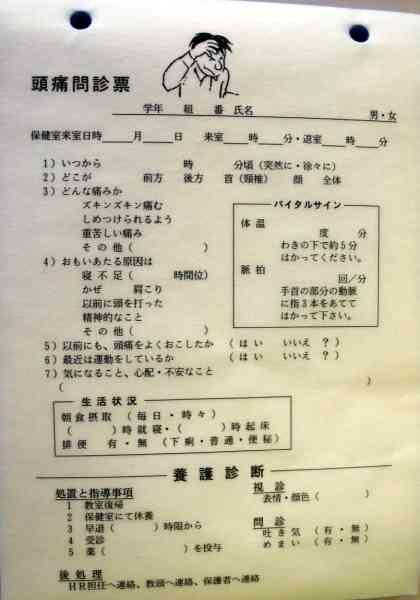 頭痛問診票
学年 組 番 氏名 男・女
保健室来室日時 月 日 来室 時 分・退室 時 分
1)いつから 時 分頃(突然に・徐々に)
2)どこが 前方 後方 首(頸椎) 顔 全体
3)どんな痛みか
ズキンズキン痛む
しめつけられるよう
重苦しい痛み
その他( )
4)おもいあたる原因は
寝不足( 時間位)
かぜ 肩こり
以前に頭を打った
精神的なこと
その他( )
バイタルサイン
体温
度 分
わきの下で約5分
はかってください。
脈拍
回/分
手首の部分の動脈
に指3本をあてて
はかって下さい。
5)以前にも、頭痛をよくおこしたか (はい いいえ ?)
6)最近は運動をしているか (はい いいえ ?)
7)気になること、心配・不安なこと
( )
生活状況
朝食摂取 (毎日・時々)
( )時就寝・( )時起床
排便 有・無 (下痢・普通・便秘)
養護診断
処置と指導事項
1 教室復帰
2 保健室にて休養
3 早退( )時限から
4 受診
5 薬( )を投与
視診
表情・顔色( )
問診
吐き気 (有・無)
めまい (有・無)
後処理
HR担任へ連絡、教頭へ連絡、保護者へ連絡